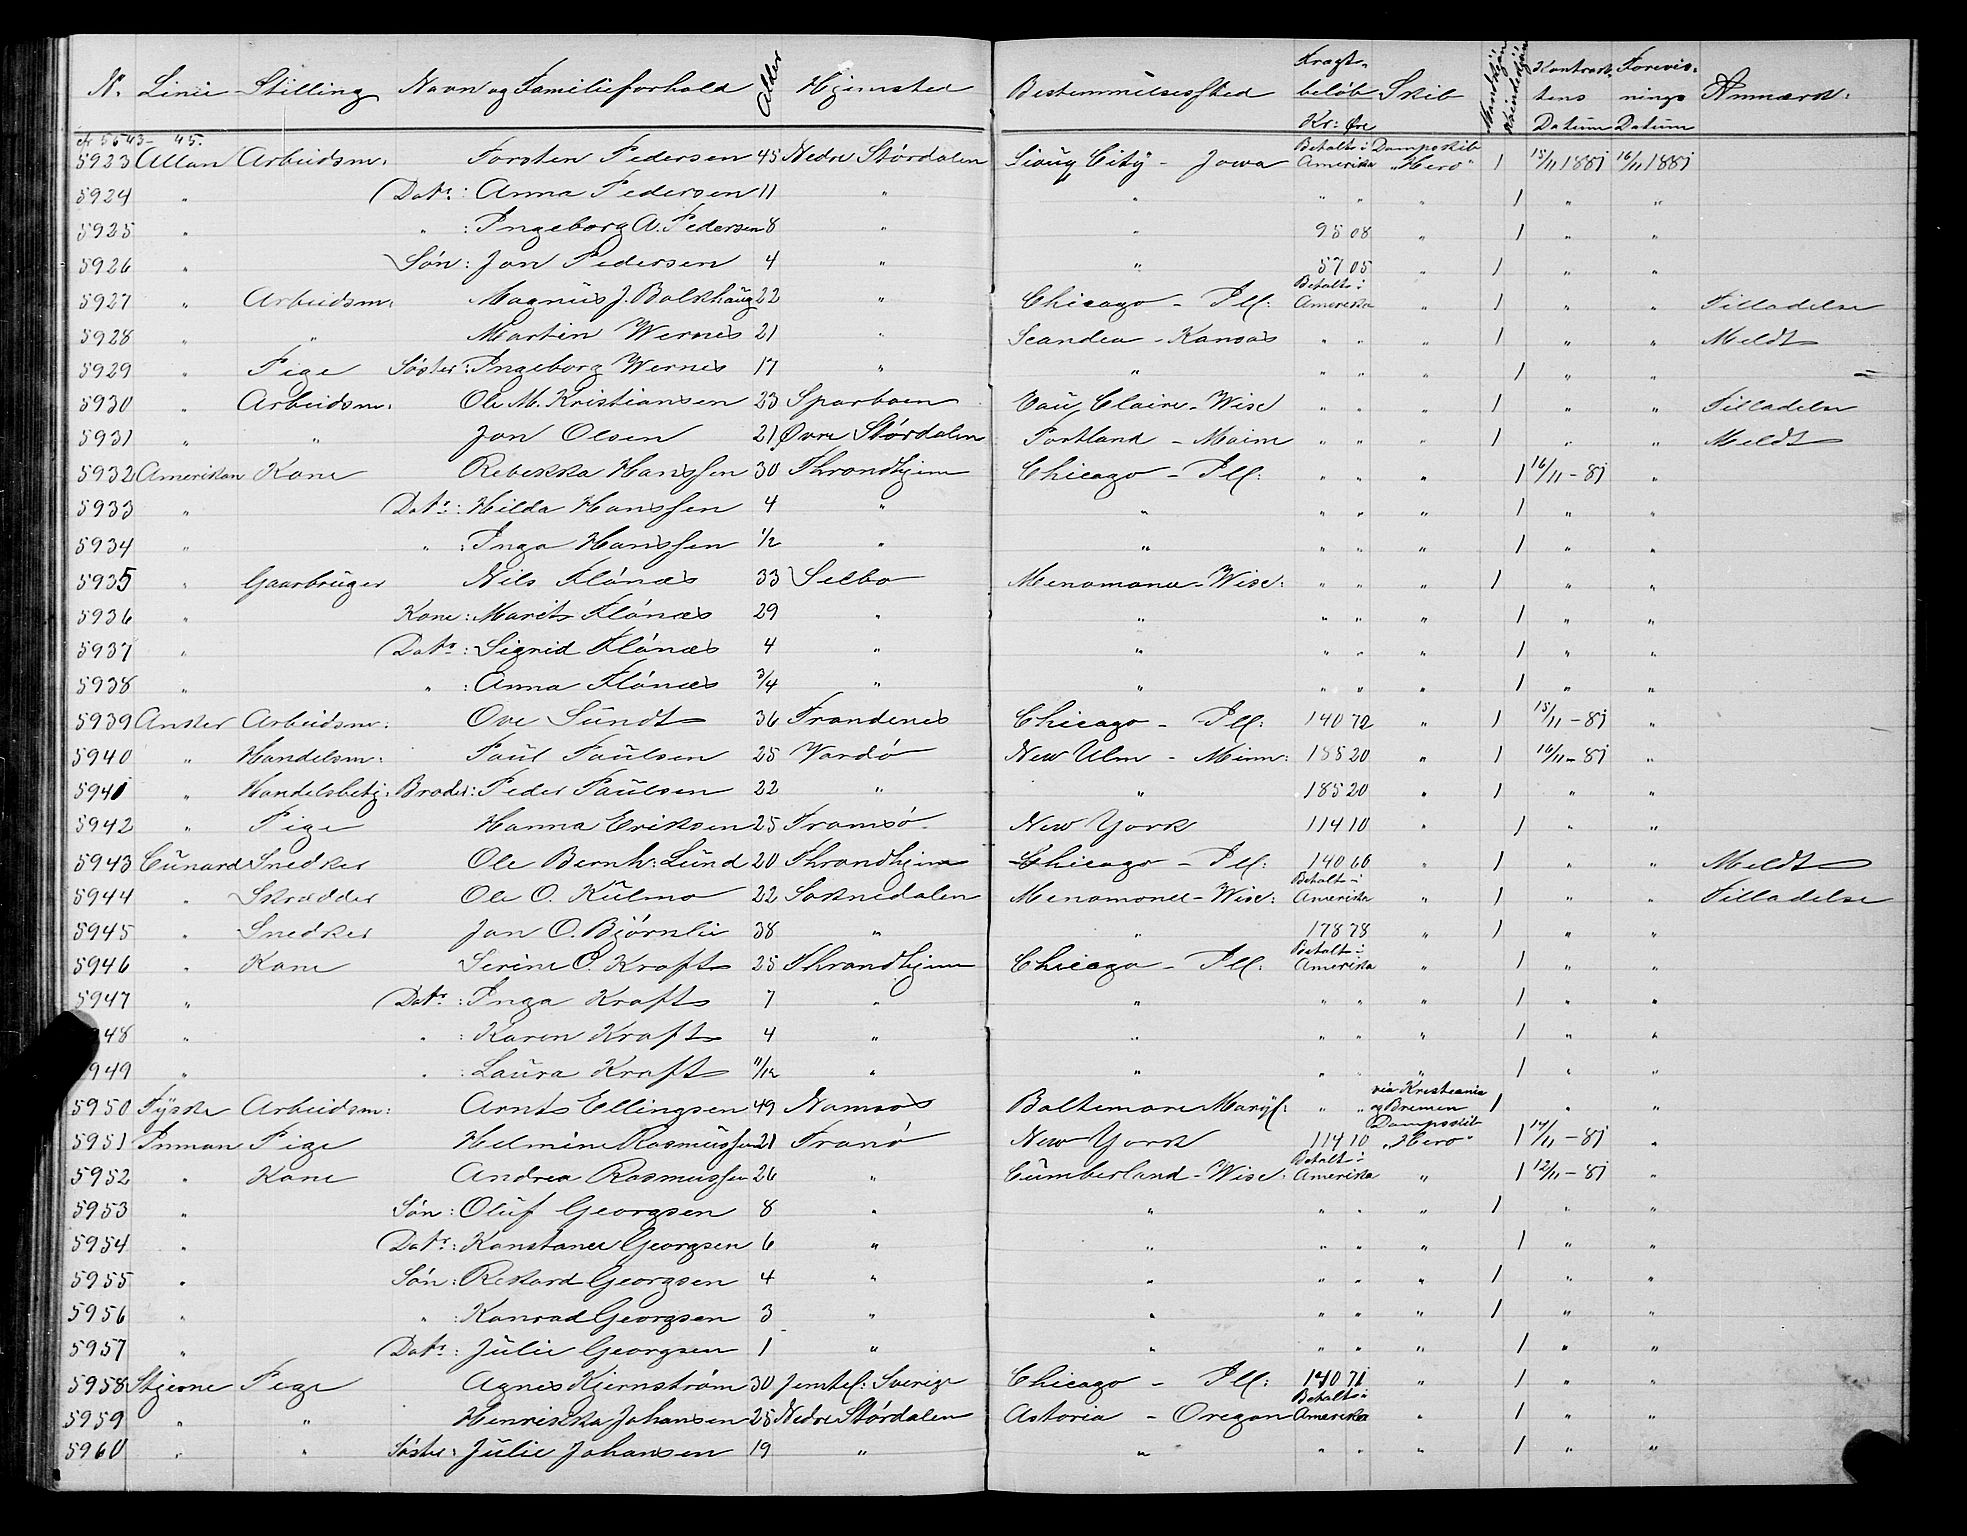 No. Linie Stilling Navn og Familieforhold Alder Hjemsted Bestemmelsessted Fragtbeløb Kr: Øre Skib Mandkjøn Kvindekjøn Kontraktens Datum Forevisnings Datum Anmærk:
cfr 5543-45.
5923 Allan Arbeidsm: Torsten Pedersen 45 Nedre Størdalen Sioux City - Jowa Betalt i Amerika Dampskib "Hero" 1 15/11 1881 16/11 1881
5924 " Datr: Anna Pedersen 11 " " " " " 1 " "
5925 " " : Ingeborg A. Pedersen 8 " " 95 08 " 1 " "
5926 " Søn: Jon Pedersen 4 " " 57 05 " 1 " "
5927 " Arbeidsm: Magnus J. Balkhaug 22 " Chicago - Ill: Betalt i Amerika " 1 " " Tilladelse
5928 " " Martin Wernes 21 " Scandea - Kansas " " " 1 " " Meldt
5929 " Pige Søster: Ingeborg Wernes 17 " " " " " 1 " " =
5930 " Arbeidsm: Ole M. Kristiansen 23 Sparboen Eau Claire - Wisc " " " 1 " " Tilladelse
5931 " " Jon Olsen 21 Øvre Størdalen Portland - Maine " " " 1 " " Meldt
5932 Amerikan Kone Rebekka Hanssen 30 Throndhjem Chicago - Ill: " " " 1 16/11 - 81 "
5933 " Datr: Hilda Hanssen 4 " " " " " 1 " "
5934 " " : Inga Hanssen 1/2 " " " " " 1 " "
5935 " Gaarbruger Nils Flónæs 33 Selbo Menomone - Wisc: " " " 1 " "
5936 " Kone: Marit Flónæs 29 " " " " " 1 " "
5937 " Datr: Sigrid Flónæs 4 " " " " " 1 " "
5938 " " : Anna Flónæs 3/4 " " " " " 1 " "
5939 Anker Arbeidsm: Ove Sundt 36 Trondenes Chicago - Ill: 140 72 " 1 15/11 - 81 "
5940 " Handelsm: Paul Paulsen 25 Vardø New Ulm - Minn: 185 20 " 1 16/11 - 81 "
5941 " Handelsbetj: Broder: Peder Paulsen 22 " " 185 20 " 1 " "
5942 " Pige Hanna Eriksen 25 Tromsø New York 114 10 " 1 " "
5943 Cunard Snedker Ole Bernh: Lund 20 Throndhjem Chicago - Ill: 140 66 " 1 " " Meldt
5944 " Skrædder Ole O. Kulmo 22 Soknedalen Menomonee - Wisc: Betalt i Amerika " 1 " " Tilladelse
5945 " Snedker Jon O. Bjørnli 38 " " 178 78 " 1 " "
5946 " Kone Serine O. Kraft 25 Throndhjem Chicago - Ill: Betalt i Amerika " 1 " "
5947 " Datr: Inga Kraft 7 " " " " " 1 " "
948 " " : Karen Kraft 4 " " " " " 1 " "
949 " " : Laura Kraft 11/12 " " " " " 1 " "
5950 Tyske Arbeidsm: Arnt Ellingsen 49 Namsos Baltemore Maryl: " " via Kristiania og Bremen 1 " "
5951 Inman Pige Helmine Rasmussen 21 Tranø New York 114 10 Dampskib "Hero" 1 14/11 - 81 "
5952 " Kone Andrea Rasmussen 26 " Cumberland - Wisc: Betalt i Amerika " 1 12/11 - 81 "
5953 " Søn: Oluf Georgsen 8 " " " " " 1 " "
5954 " Datr: Konstance Georgsen 6 " " " " " 1 " "
5955 " Søn: Rikard Georgsen 4 " " " " " 1 " "
5956 " " : Konrad Georgsen 3 " " " " " 1 " "
5957 " Datr: Julie Georgsen 1 " " " " " 1 " "
5958 Stjerne Pige Agnes Kjernström 30 Jemtl: Sverige Chicago - Ill: 140 71 " 1 " "
5959 " " Henrikka Johansen 25 Nedre Størdalen Astoria - Oregon Betalt i Amerika " 1 " "
5960 " " Søster: Julie Johansen 19 " " " " " 1 " "